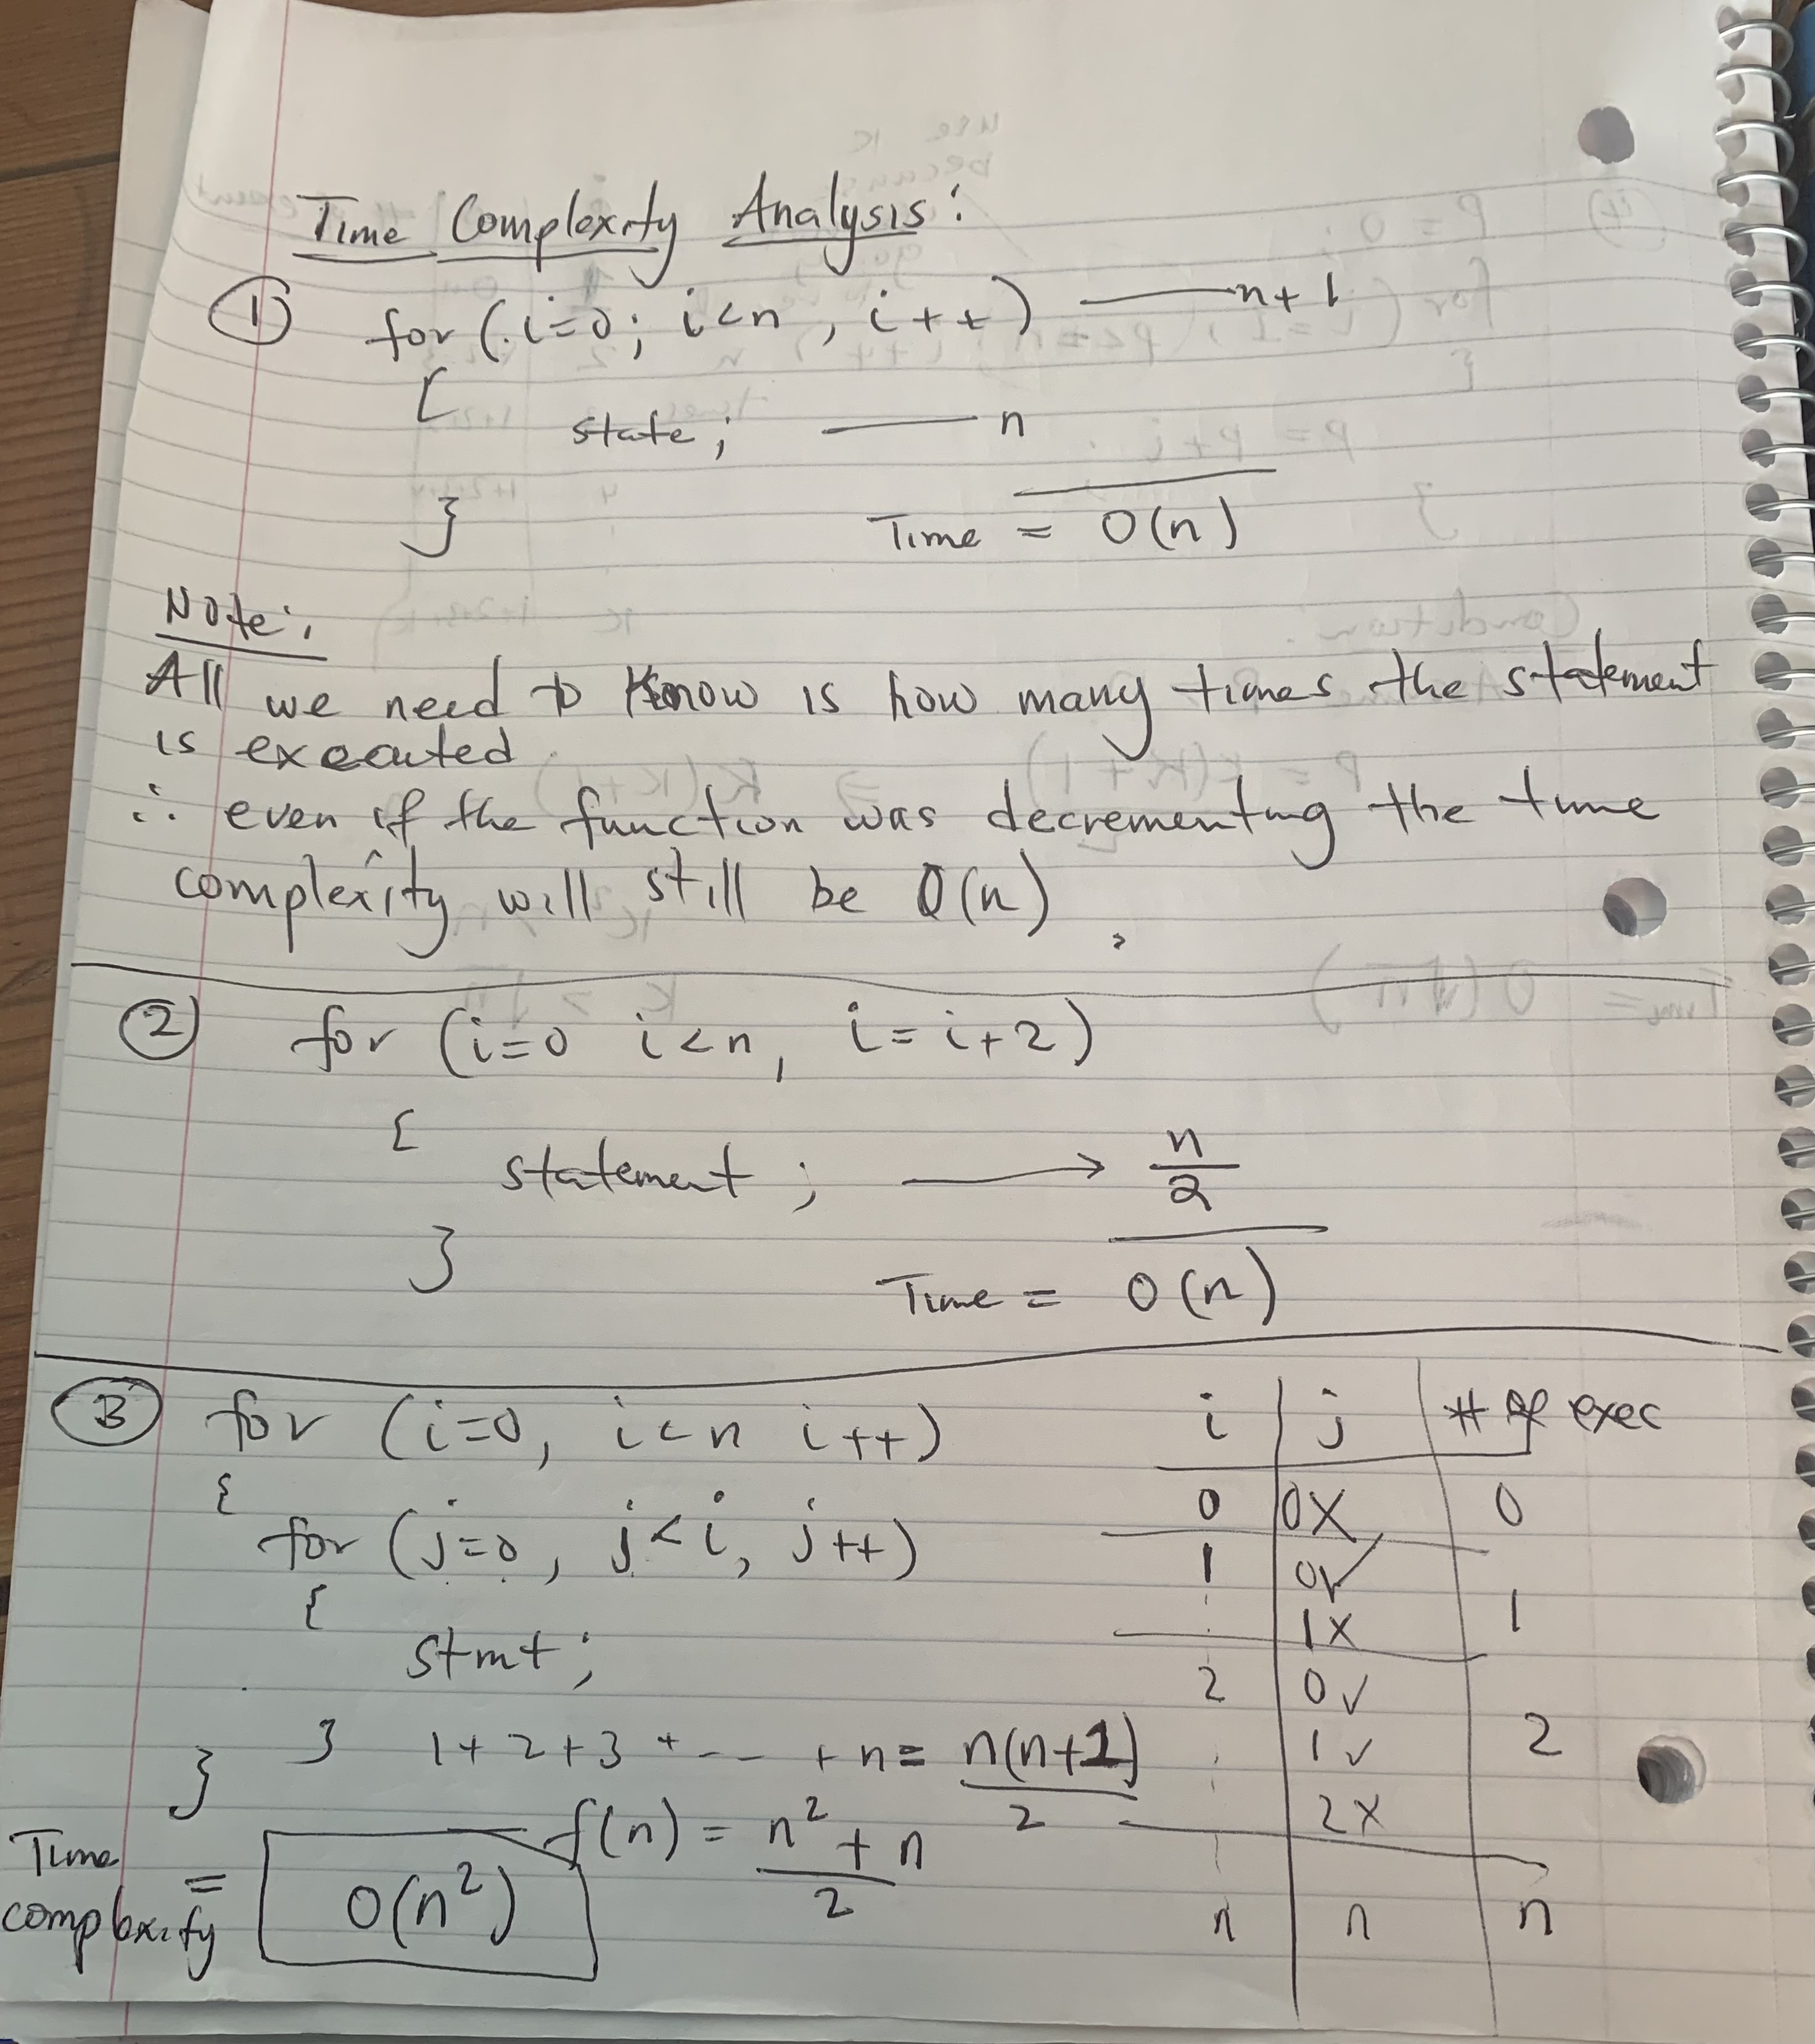 Time Complexity Analysis:
① for (i=0; i<n, i++) —— n+1
[
state; —— n
}
Time = O(n)
Note:
All we need to know is how many times the statement
is executed
∴ even if the function was decrementing the time
complexity will still be O(n),
② for (i=0 i<n, i=i+2)
{
statement; → n/2
}
Time = O(n)
③ for (i=0, i<n i++)
{
for (j=0, j<i, j++)
{
stmt;
}
}
1+2+3+--- +n= n(n+1)/2
f(n) = n²+n/2
Time complexity = O(n²)
i | j | # of exec
0 | 0X | 0
1 | 0✓
1X | 1
2 | 0✓
1✓ | 2
2X
n | n | n